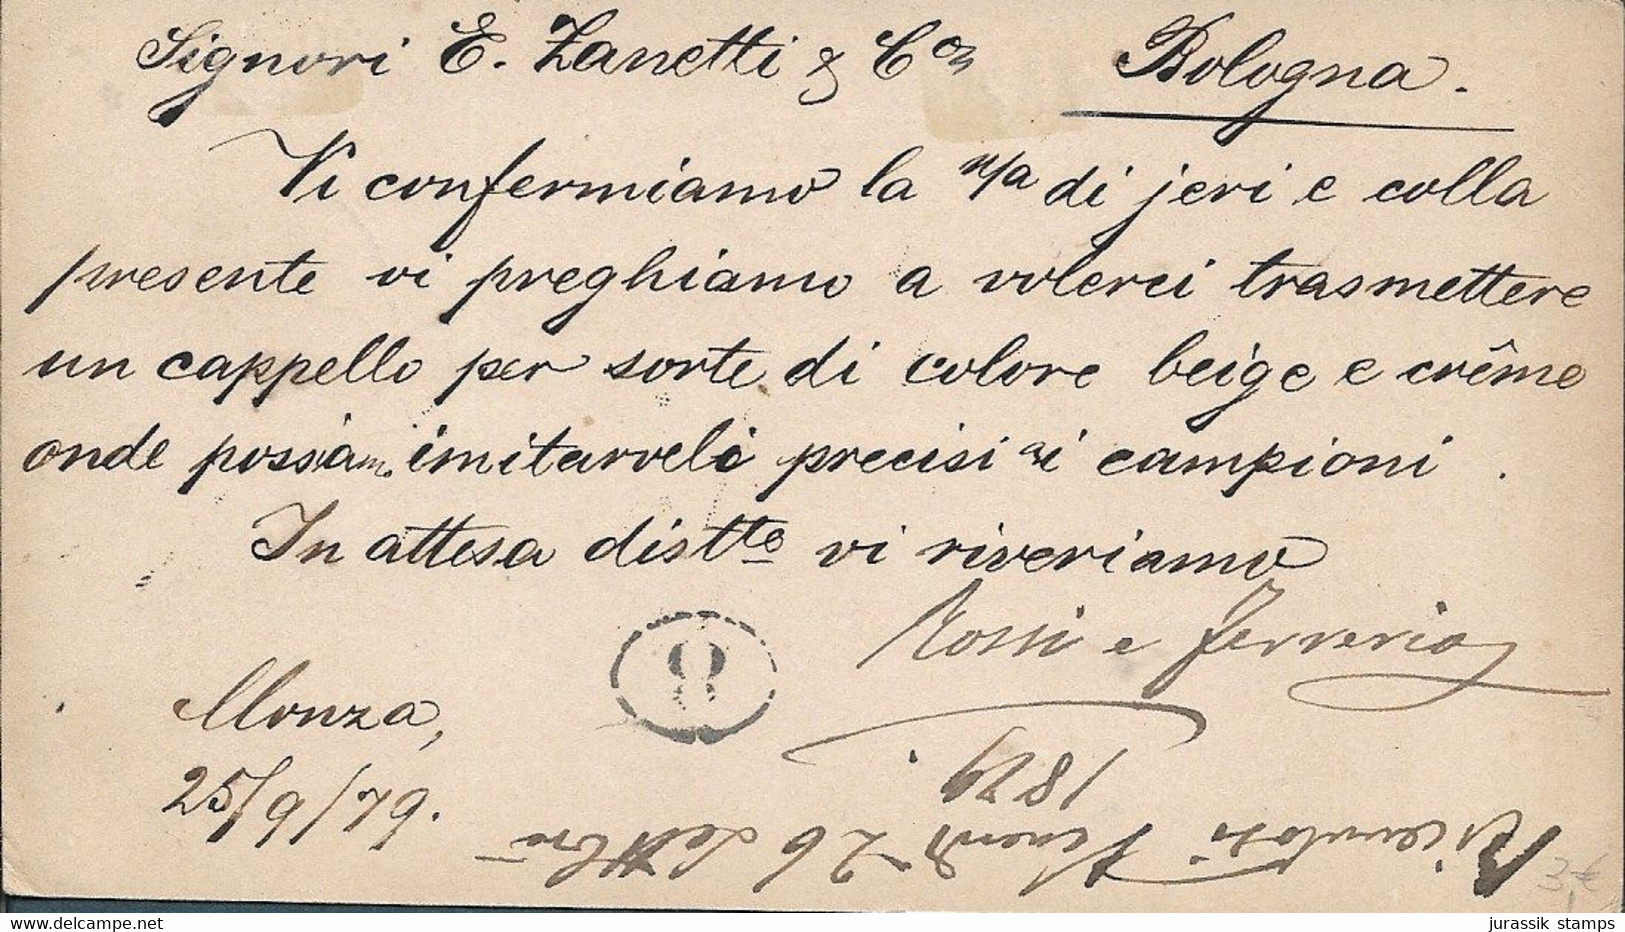 Signori E. Zanetti & Co Bologna.
Vi confermiamo la n/a di jeri e colla
presente vi preghiamo a volerci trasmettere
un cappello per sorte di colore beige e crême
onde possiam. imitarveli precisi ai campioni.
In attesa distte vi riveriamo
Rossi e Ferrerio
8
Monza,
25/9/79.
Ricevuto Venerdì 26 Settbre
1879.
3,€
jurassik stamps